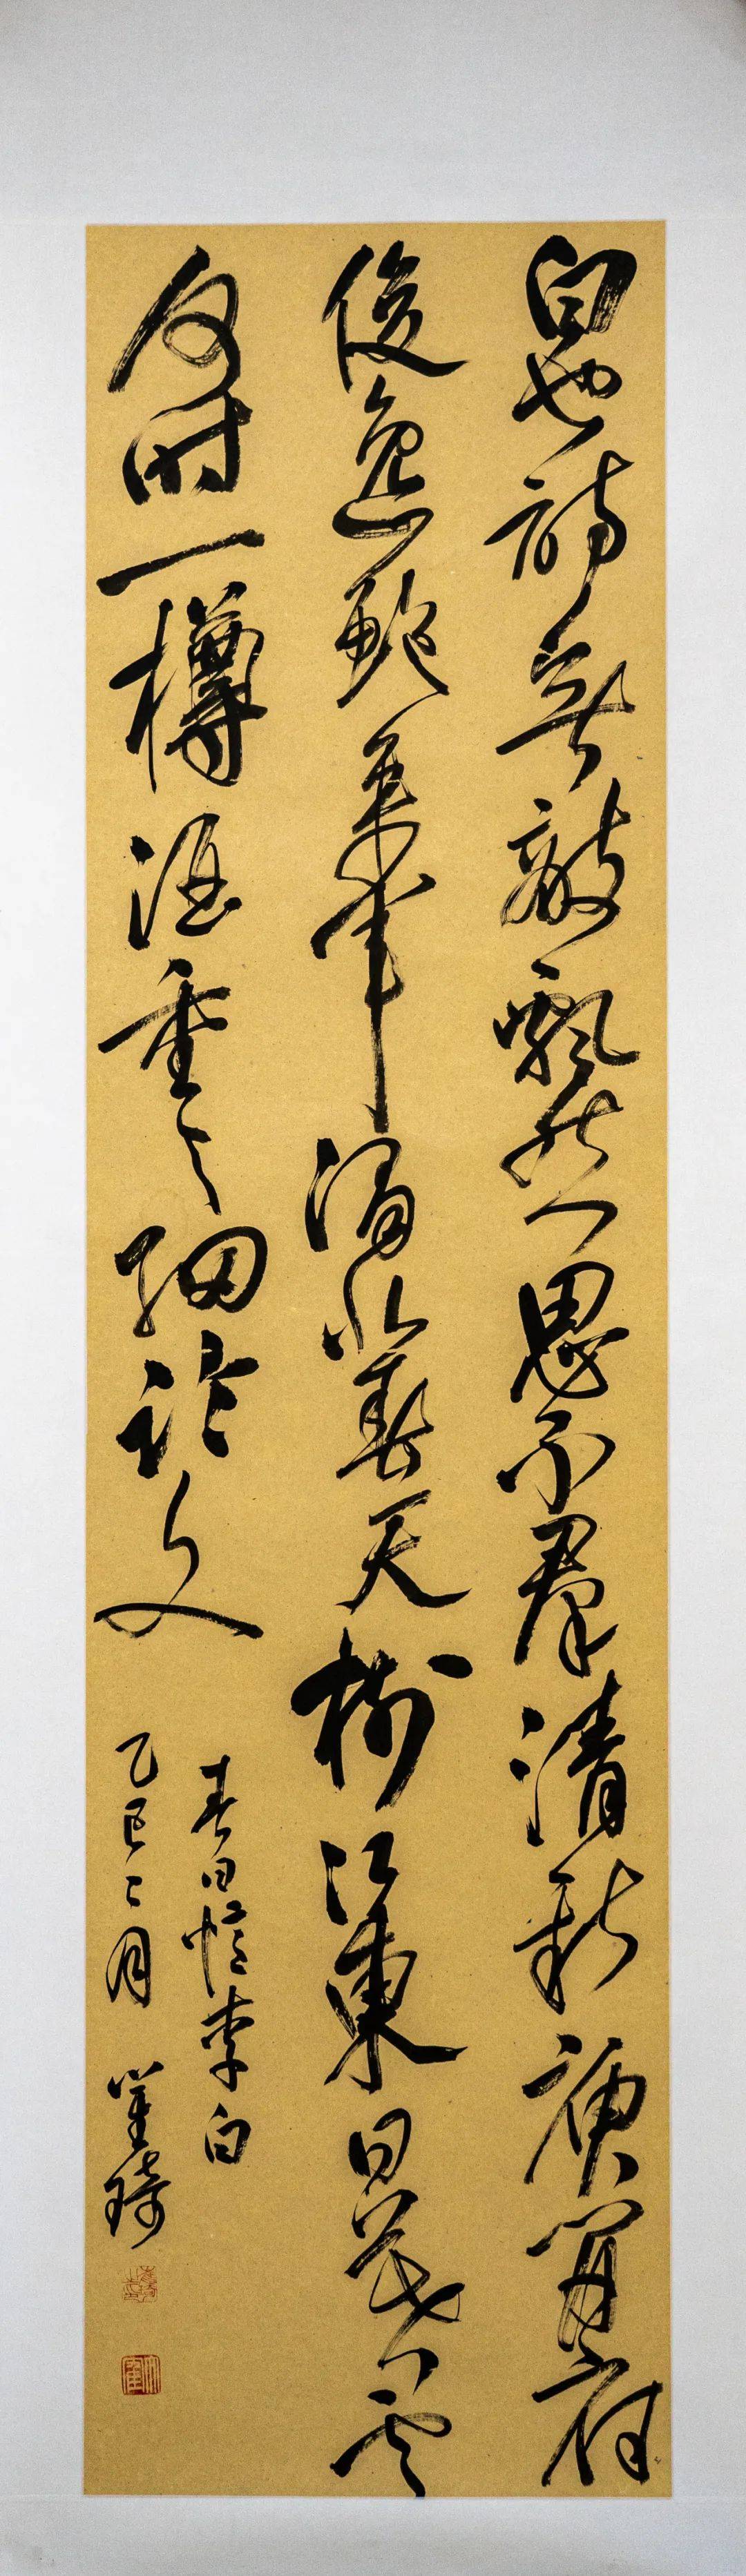 白也詩無敵飄然思不羣清新庾開府
俊逸鮑參軍渭北春天樹江東日暮雲
何時一樽酒重與細論文
春日憶李白
乙巳二月 崔琦